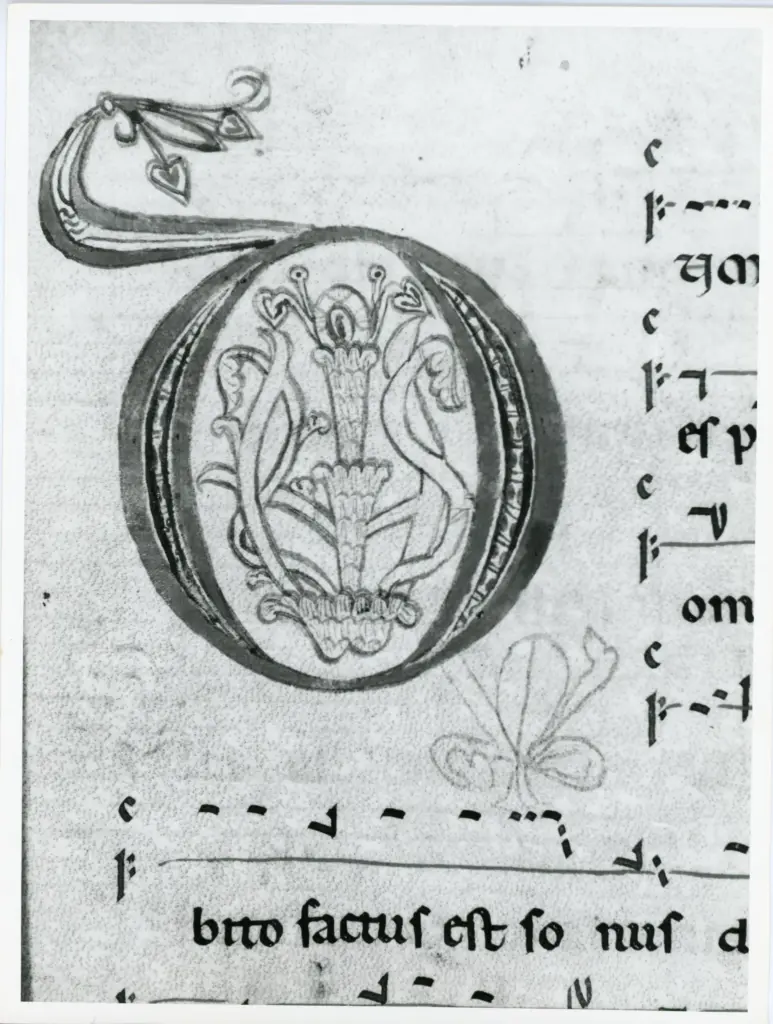 D
um
eſ p
om
bito factuſ eſt ſo nuſ d